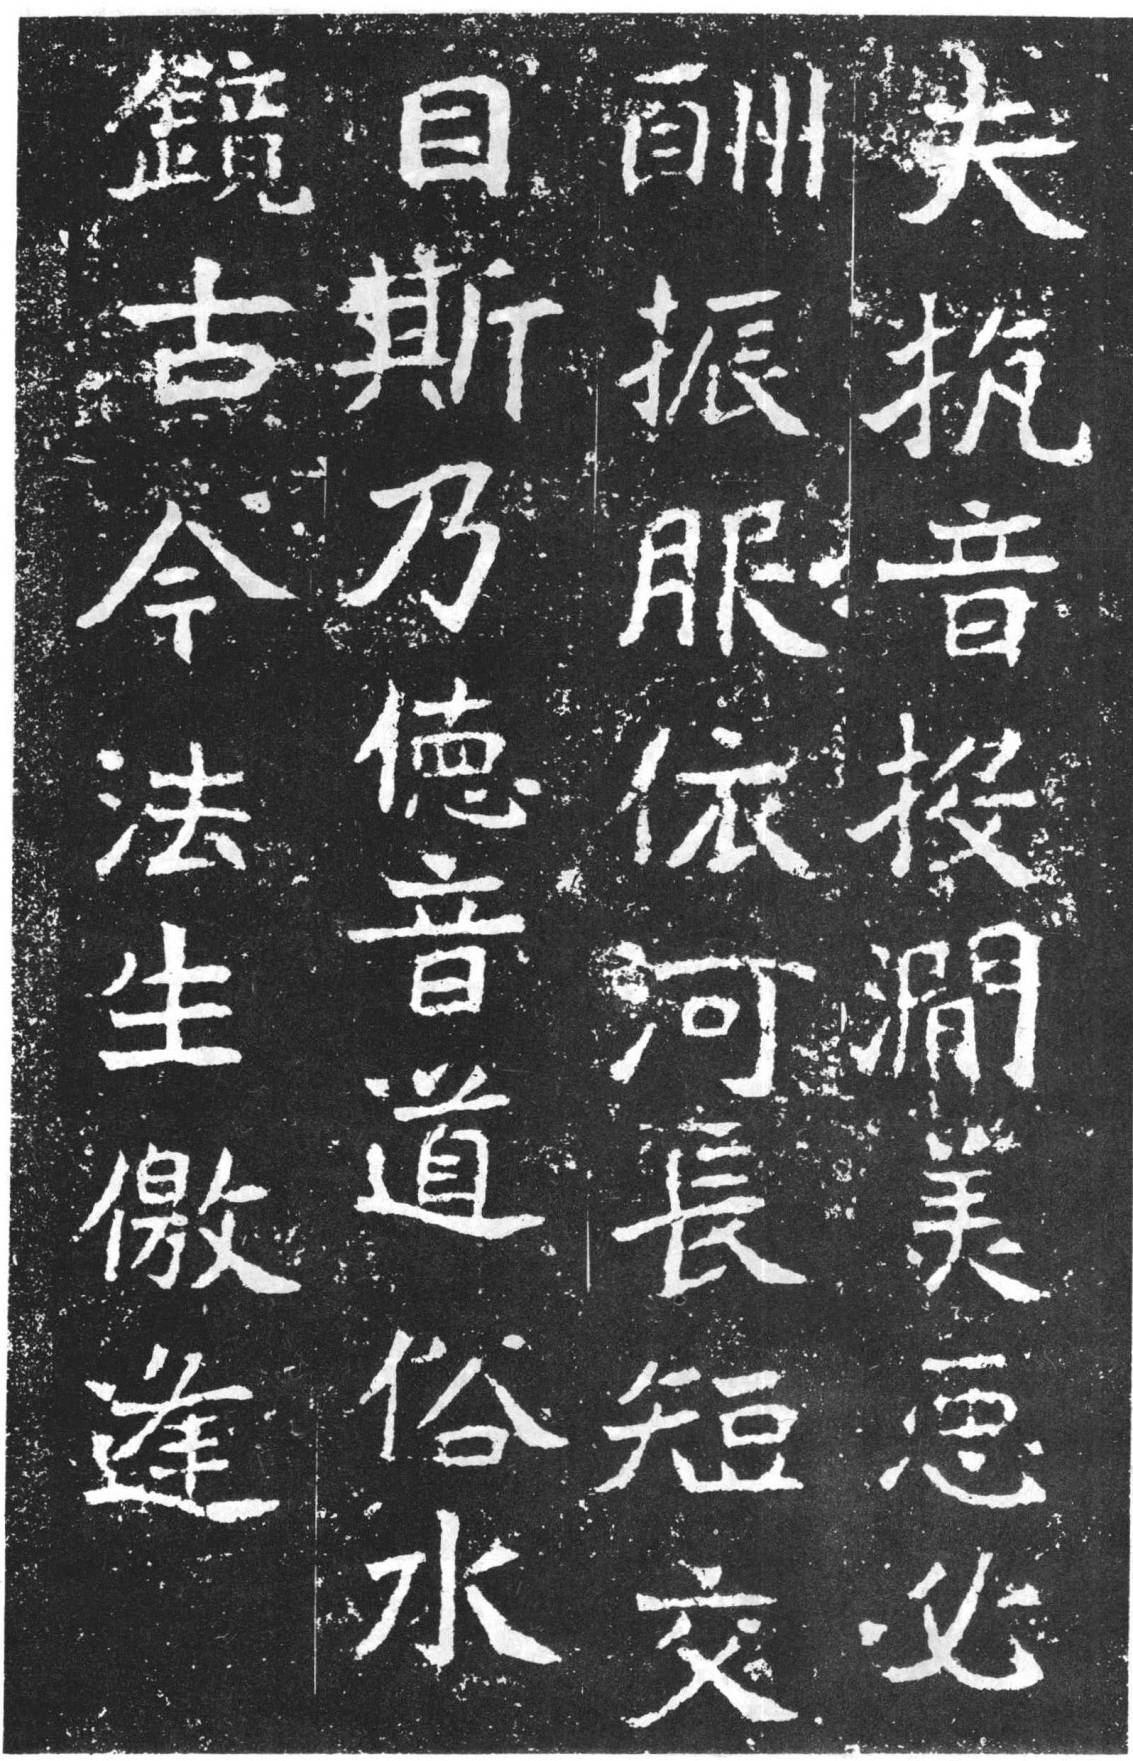 夫抗音投澗美惡必
酬振服依河長短交
目斯乃德音道俗水
鏡古今法生儌逢